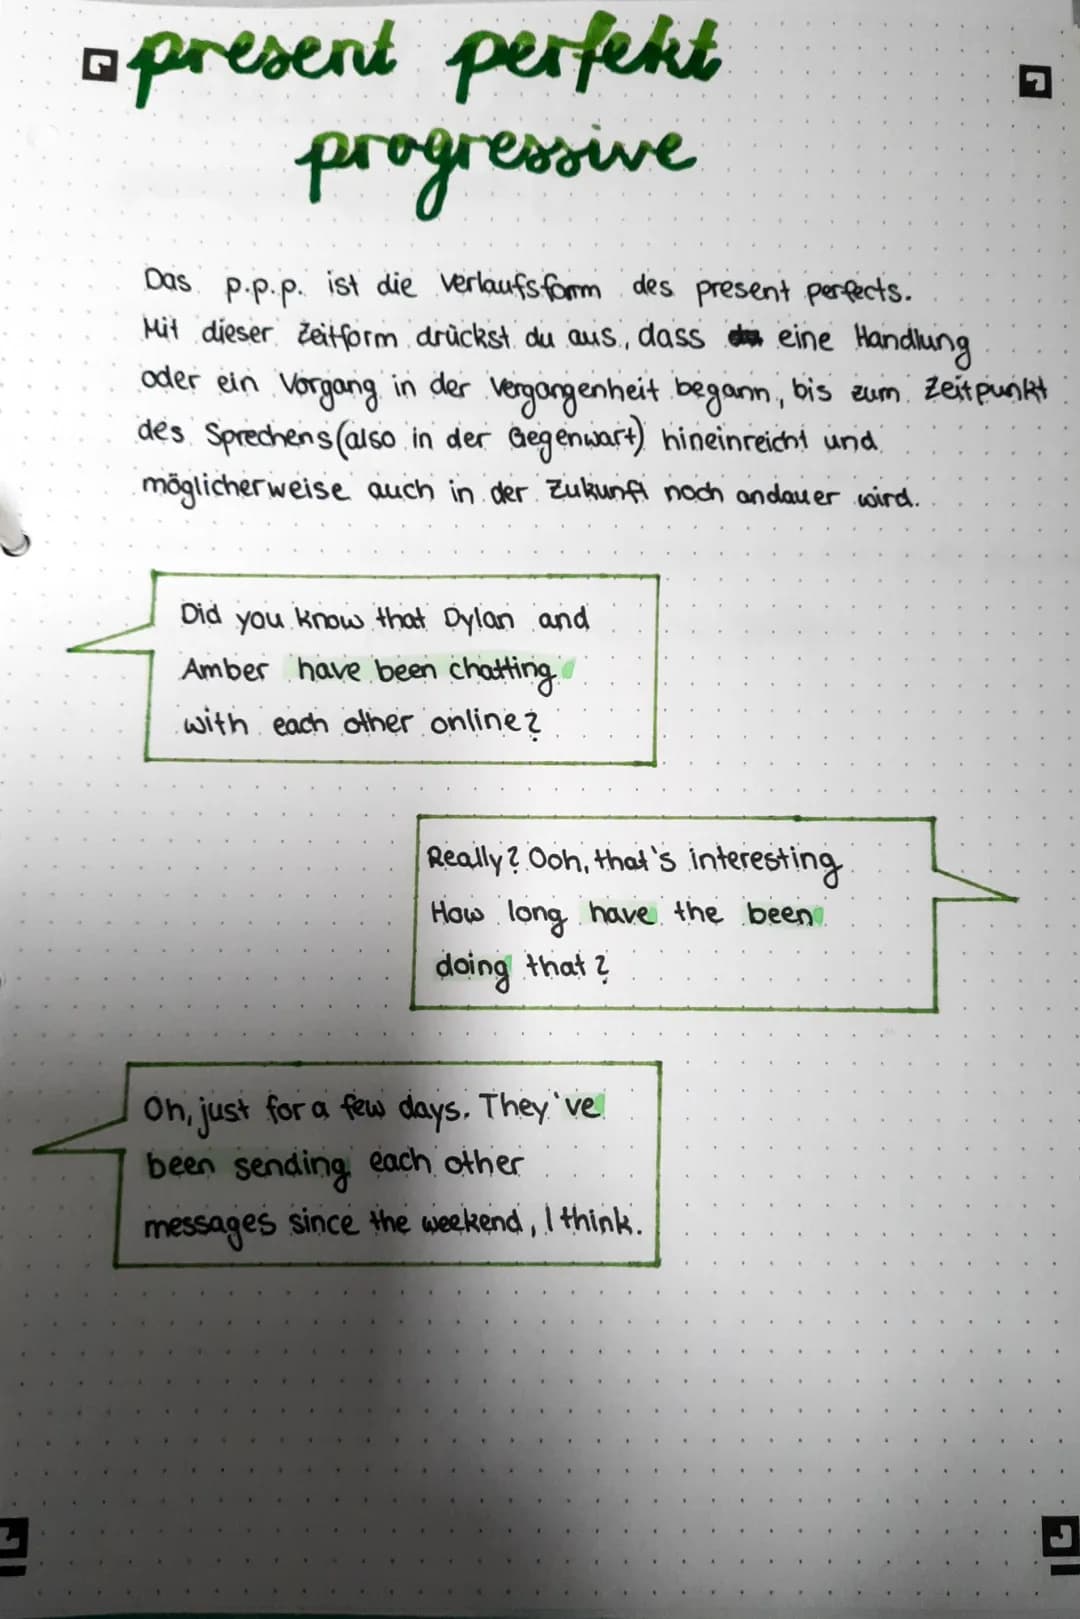 present perfekt
progressive
Das p.p.p. ist die Verlaufsform des present perfects.
Mit dieser Zeitform drückst du aus, dass eine Handlung
oder ein Vorgang in der Vergangenheit begann, bis zum Zeitpunkt
des Sprechens (also in der Gegenwart) hineinreicht und
möglicherweise auch in der Zukunft noch andauer wird.
Did you know that Dylan and
Amber have been chatting
with each other online?
Really? Ooh, that's interesting
How long have the been
doing that?
Oh, just for a few days. They've
been sending each other
messages since the weekend, I think.